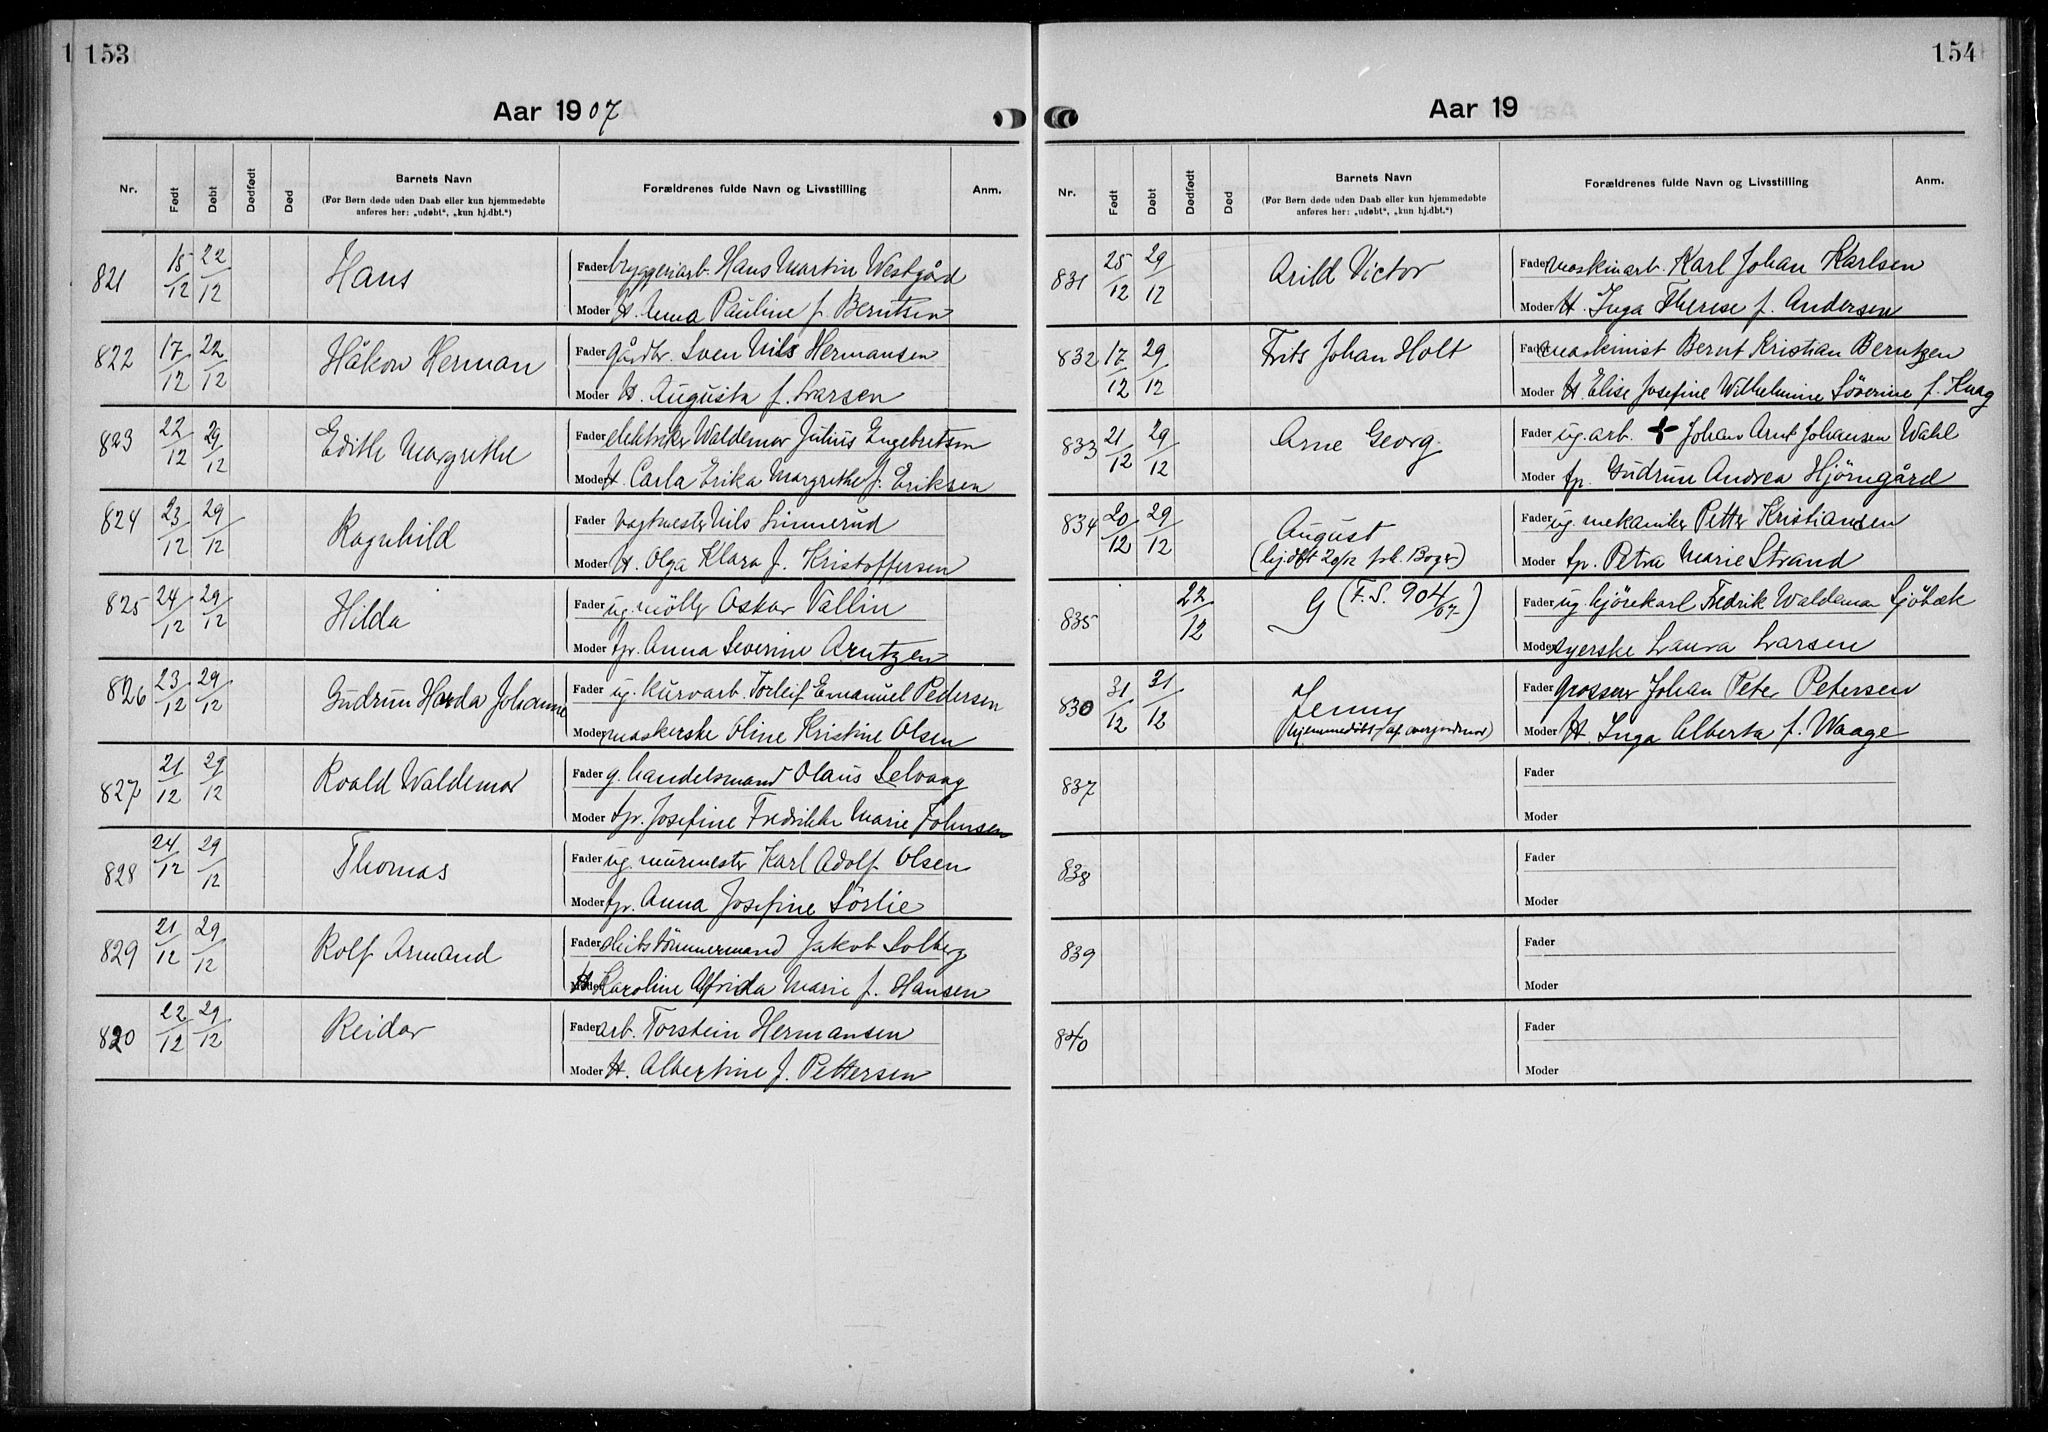 153
Aar 1907
Nr. Født Døbt Dødfødt Død Barnets Navn Forældrenes fulde Navn og Livsstilling Anm.
(For Børn døde uden Daab eller kun hjemmedøbte
anføres her: „udøbt“, „kun hj.dbt.“)
821 15/12 22/12 Hans Fader bryggeriarb. Hans Martin Westgård
Moder H. Anna Pauline f. Berntsen
822 17/12 22/12 Håkon Herman Fader gårdbr. Sven Nils Hermansen
Moder H. Augusta f. Larsen
823 22/12 29/12 Edith Margrethe Fader elektriker Waldemar Julius Engebretsen
Moder H. Carla Erika Margrethe f. Eriksen
824 23/12 29/12 Ragnhild Fader vogtmester Nils Linnerud
Moder H. Olga Klara f. Kristoffersen
825 24/12 29/12 Hilda Fader ug. möller Oskar Vallin
Moder fpr. Anna Severine Arntzen
826 23/12 29/12 Gudrun Harda Johanne Fader ug. kurvarb. Torleif Emanuel Pedersen
Moder maskerske Oline Kristine Olsen
827 21/12 29/12 Roald Waldemar Fader g. handelsmand Olaus Selvaag
Moder fpr. Josefine Fredrikke Marie Johnsen
828 24/12 29/12 Thomas Fader ug. murmester Karl Adolf Olsen
Moder fpr. Anna Josefine Sörlie
829 21/12 29/12 Rolf Armand Fader skibstömmermand Jakob Solberg
Moder H Karoline Alfrida Marie f. Hansen
820 22/12 29/12 Reidar Fader arb. Torstein Hermansen
Moder H. Albertine f. Pettersen
154
Aar 19
Nr. Født Døbt Dødfødt Død Barnets Navn Forældrenes fulde Navn og Livsstilling Anm.
(For Børn døde uden Daab eller kun hjemmedøbte
anføres her: „udøbt“, „kun hj.dbt.“)
831 25/12 29/12 Arild Victor Fader maskinarb. Karl Johan Karlsen
Moder H. Inga Therese f. Andersen
832 17/12 29/12 Frits Johan Holt Fader maskinist Bernt Kristian Berntzen
Moder H. Elise Josefine Wilhelmine Söverine f. Knag
833 21/12 29/12 Arne Georg Fader ug. arb. Johan Arnt Johansen Wahl
Moder fp. Gudrun Andrea Hjörngård
834 20/12 29/12 August Fader ug. mekaniker Petter Kristiansen
(hj.dbt 20/12 frk. Boger) Moder fp. Petra Marie Strand
835 22/12 G (F.S. 904/07) Fader ug kjörekarl Fredrik Waldemar Sjöbæk
Moder syerske Laura Larsen
830 31/12 31/12 Jenny Fader grosserer Johan Peter Petersen
(hjemmedöbt af overjordmor) Moder H. Inga Alberta f. Waage
837 Fader
Moder
838 Fader
Moder
839 Fader
Moder
840 Fader
Moder